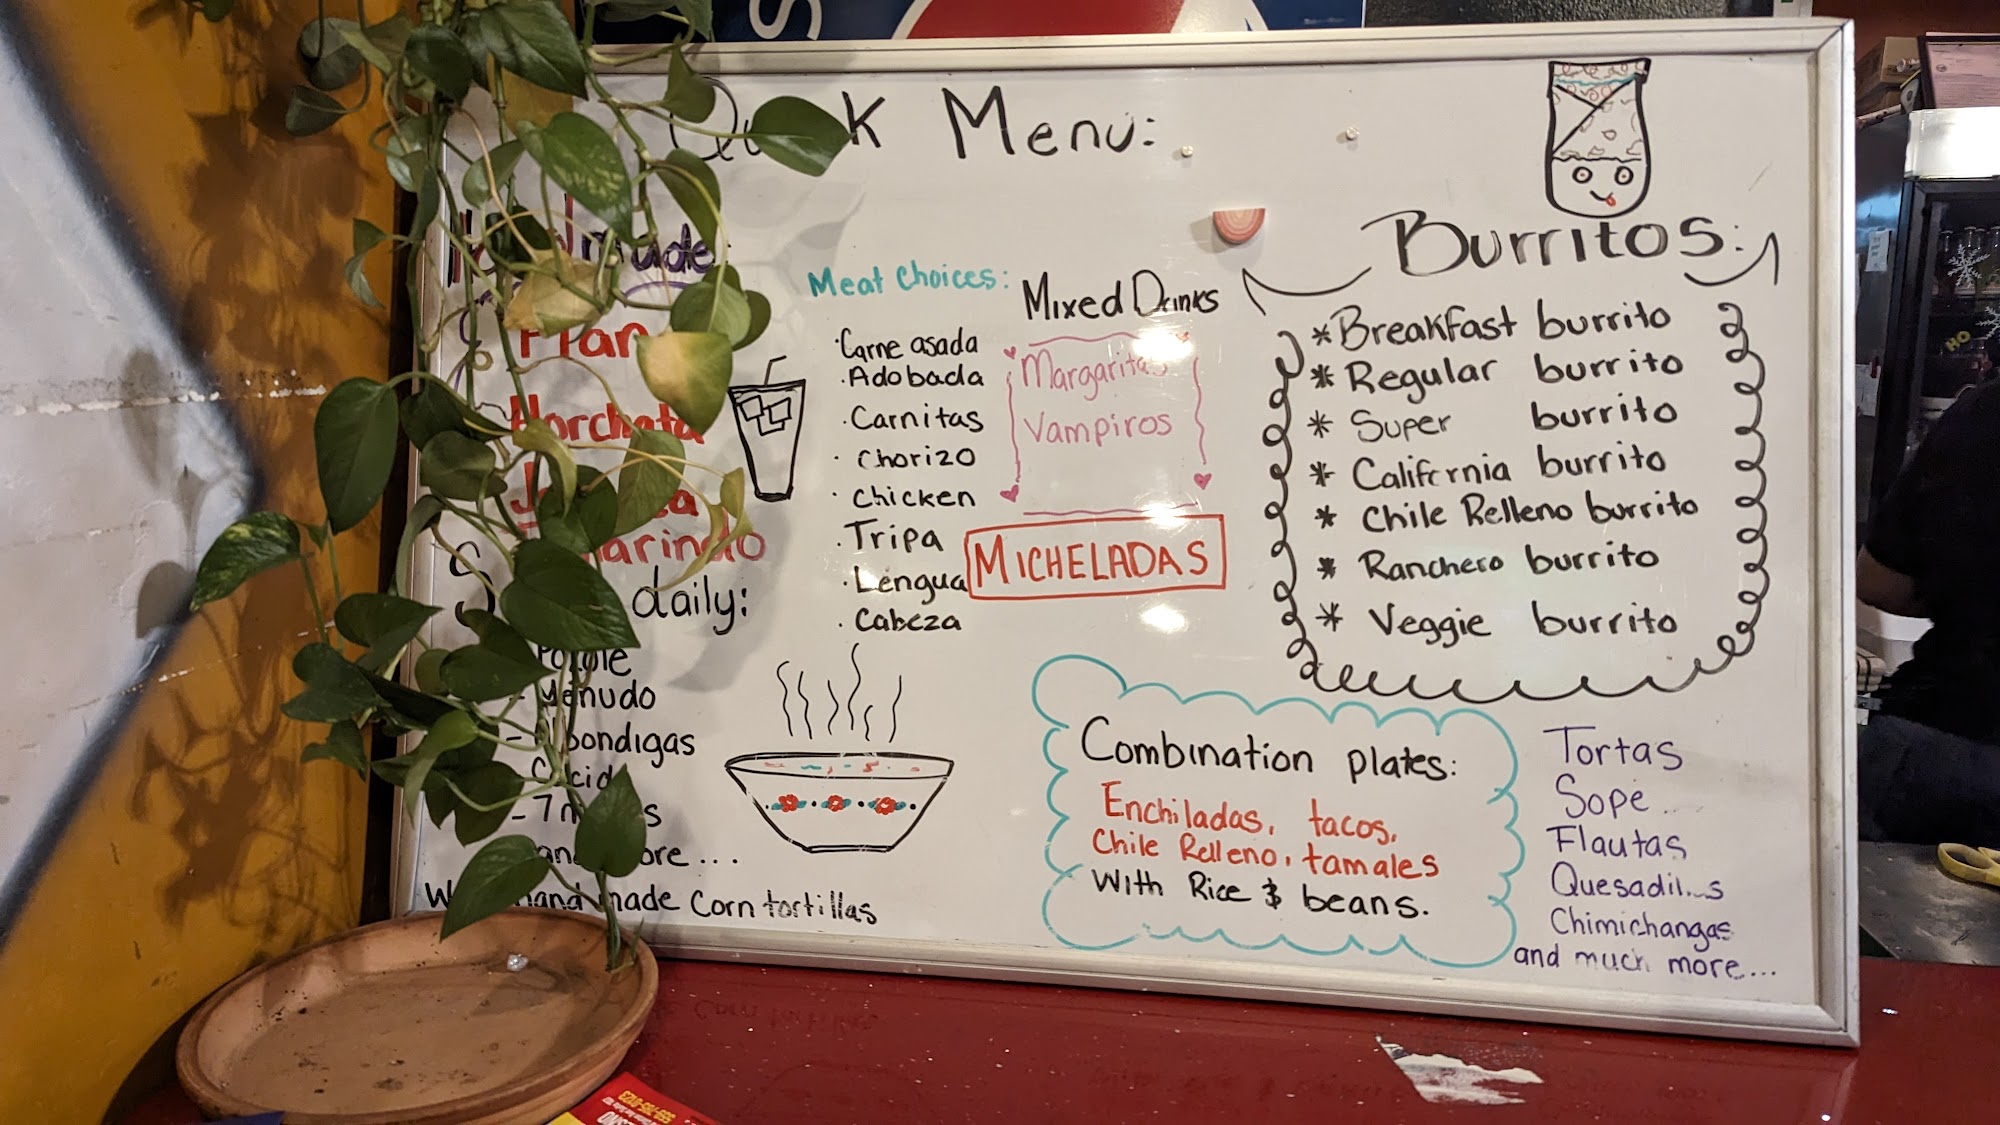 Menu:
Handmade:
Flan
Horchata
daily:
Pozole
- Menudo
- Albondigas
- 7
and more...
hand made Corn tortillas
Meat Choices:
· Carne asada
· Adobada
· Carnitas
· Chorizo
· Chicken
· Tripa
· Lengua
· Cabeza
Mixed Drinks
Margaritas
Vampiros
MICHELADAS
Burritos:
* Breakfast burrito
* Regular burrito
* Super burrito
* California burrito
* Chile Relleno burrito
* Ranchero burrito
* Veggie burrito
Combination plates:
Enchiladas, tacos,
Chile Relleno, tamales
With Rice & beans.
Tortas
Sope
Flautas
Quesadillas
Chimichangas
and much more...